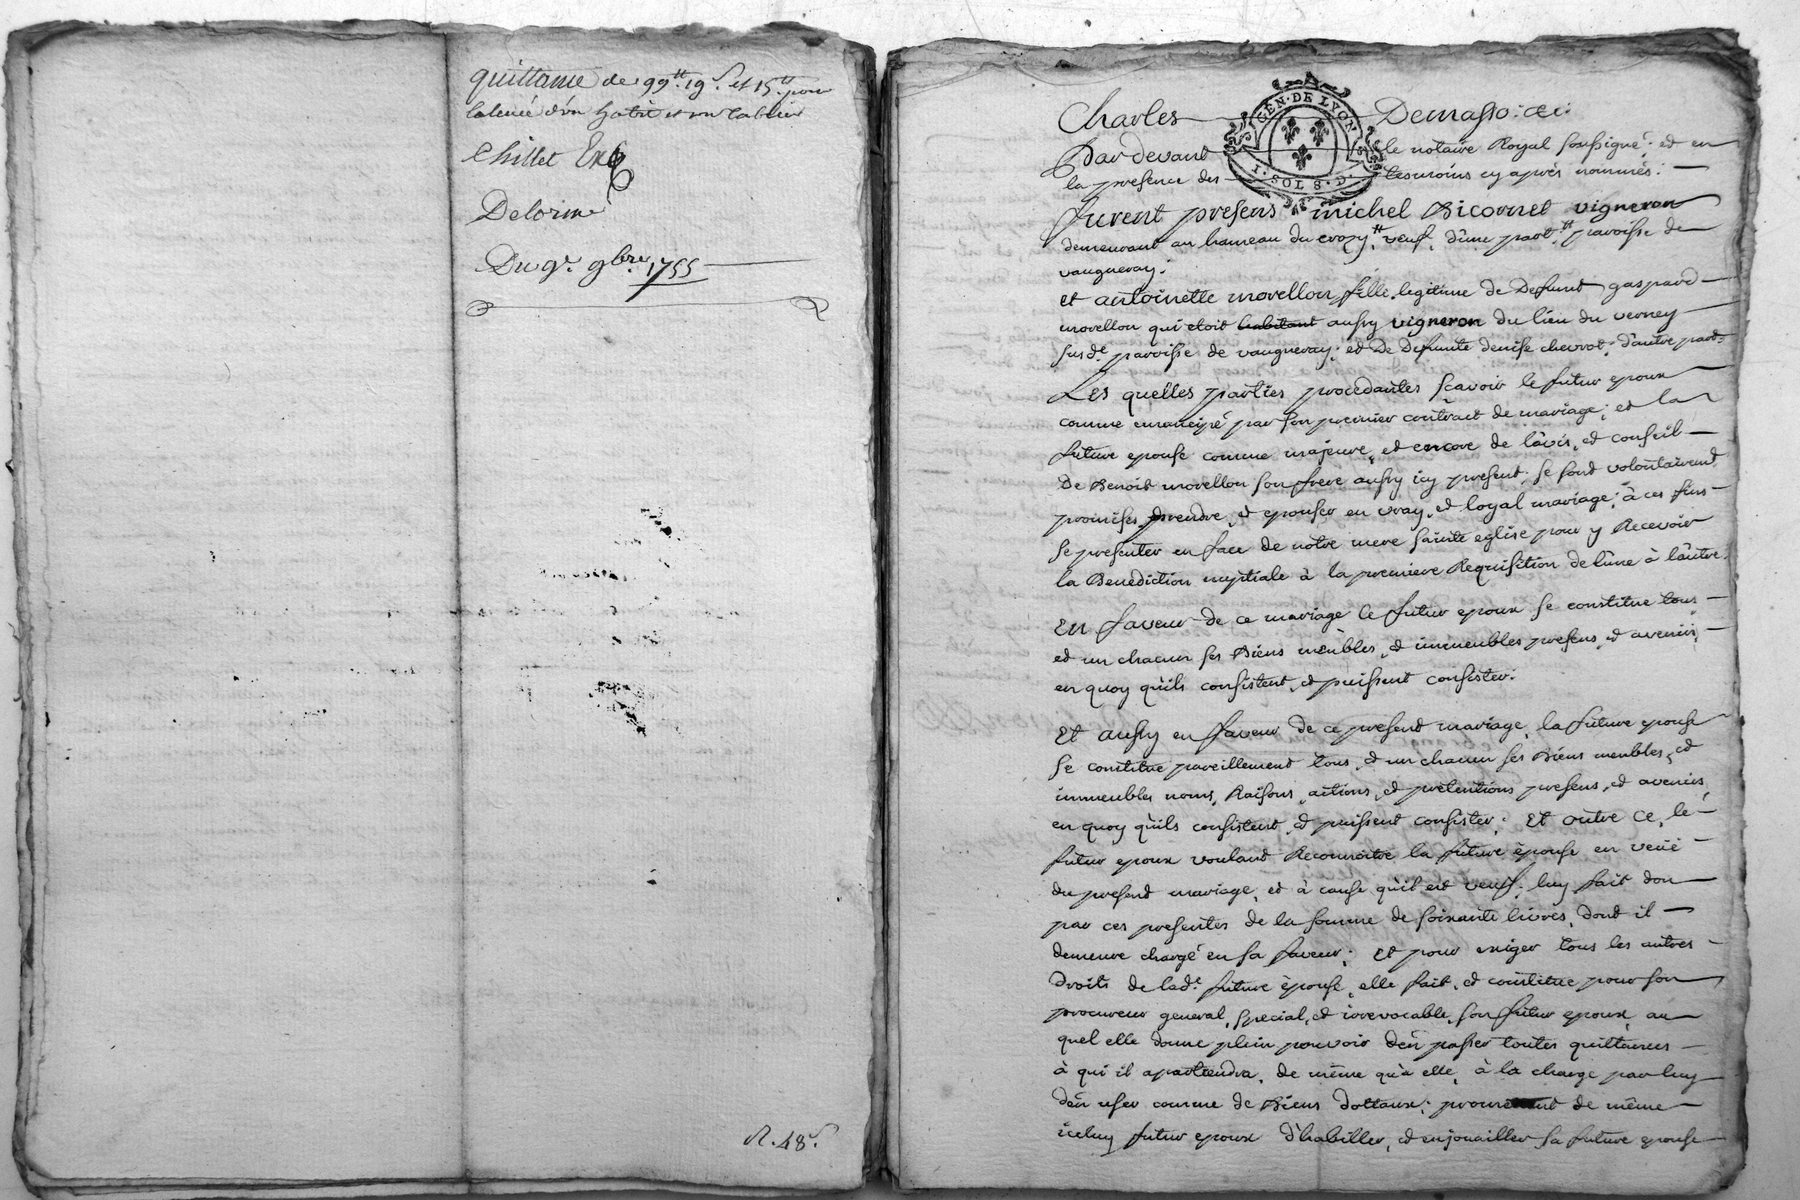 quittance de 99.tt 19.s et 15.tt pour
la
Chillet Ex
Delorme
Du 9.e 9bre 1755
R. 48.s
Charles Demasso: &c:
GÉN. DE LYON
I. SOL 8. D.
Pardevant le notaire Royal soussigné; et en
la presence des tesmoins cy aprés nommés:
furent presens michel Bicornet vigneron
demeurant au hameau du crozy,tt veuf, d'une part,tt parroisse de
vaugneray;
et antoinette morellon, fille legitime de Defunt gaspard
morellon qui etoit habitant aussy vigneron du lieu du verney
susd.e parroisse de vaugneray; et de Defunte denise chevrot; d'autre part:
Les quelles parties procedantes scavoir le futur epoux
comme emancipé par son premier contract de mariage; et la
future epouse comme majeure, et encore de l'avis, et conseil
De Benoit morellon son frere aussy icy present; se sont volontairemt
promises prendre, et epouser en vray, et loyal mariage; à ces fins
se presenter en face de notre mere sainte eglise pour y Recevoir
la Benediction nuptiale à la premiere Requisition de l'une à l'autre.
En faveur de ce mariage le futur epoux se constitue tous
et un chacun ses Biens meubles, et immeubles presens, et avenir,
en quoy qu'ils consistent, et puissent consister:
Et aussy en faveur de ce present mariage, la future epouse
se constitue pareillement tous, et un chacun ses Biens meubles, et
immeubles noms, Raisons, actions, et pretentions presens, et avenir,
en quoy qu'ils consistent, et puissent consister; Et outre ce, le
futur epoux voulant Reconnoitre la future épouse en veüe
du present mariage, et à cause qu'il est veuf, luy fait don
par ces presentes de la somme de soixante livres, dont il
demeure chargé en sa faveur; et pour exiger tous les autres
Droits de lad.e future épouse, elle fait, et constitue pour son
procureur general, special, et irrevocable, son futur epoux, au
quel elle donne plein pouvoir d'en passer toutes quittances
à qui il apartiendra, de même qu'a elle, à la charge par luy
d'en user comme de Biens dottaux; de même
iceluy futur epoux d'habiller, et enjouailler sa future epouse